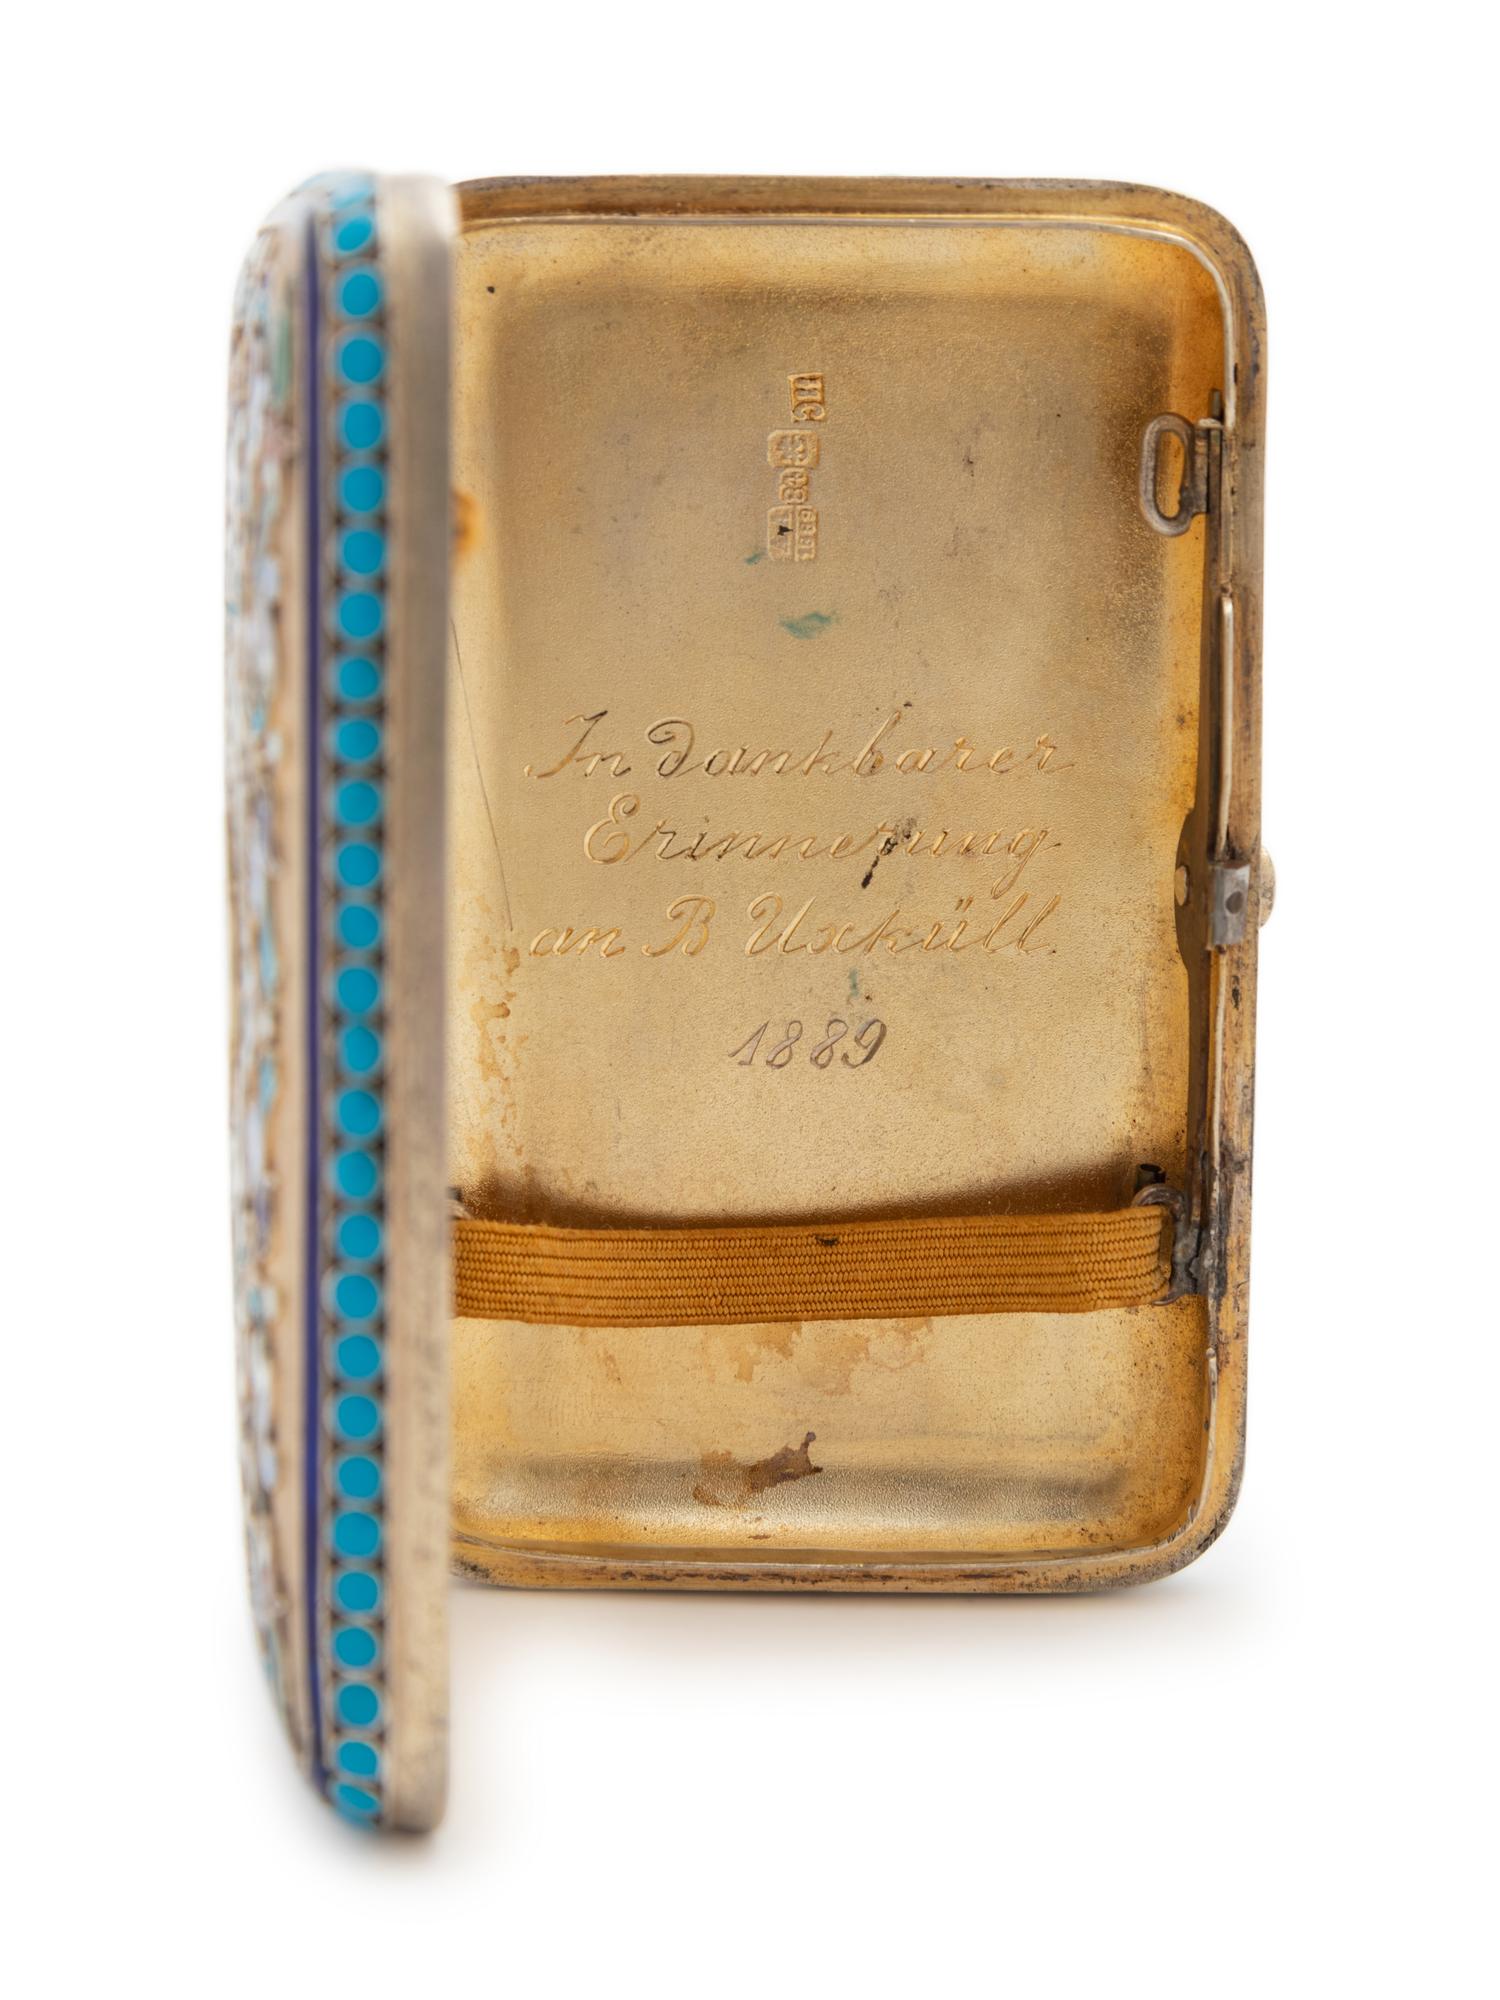 ПС
84
1889
In dankbarer
Erinnerung
an B Uxküll.
1889